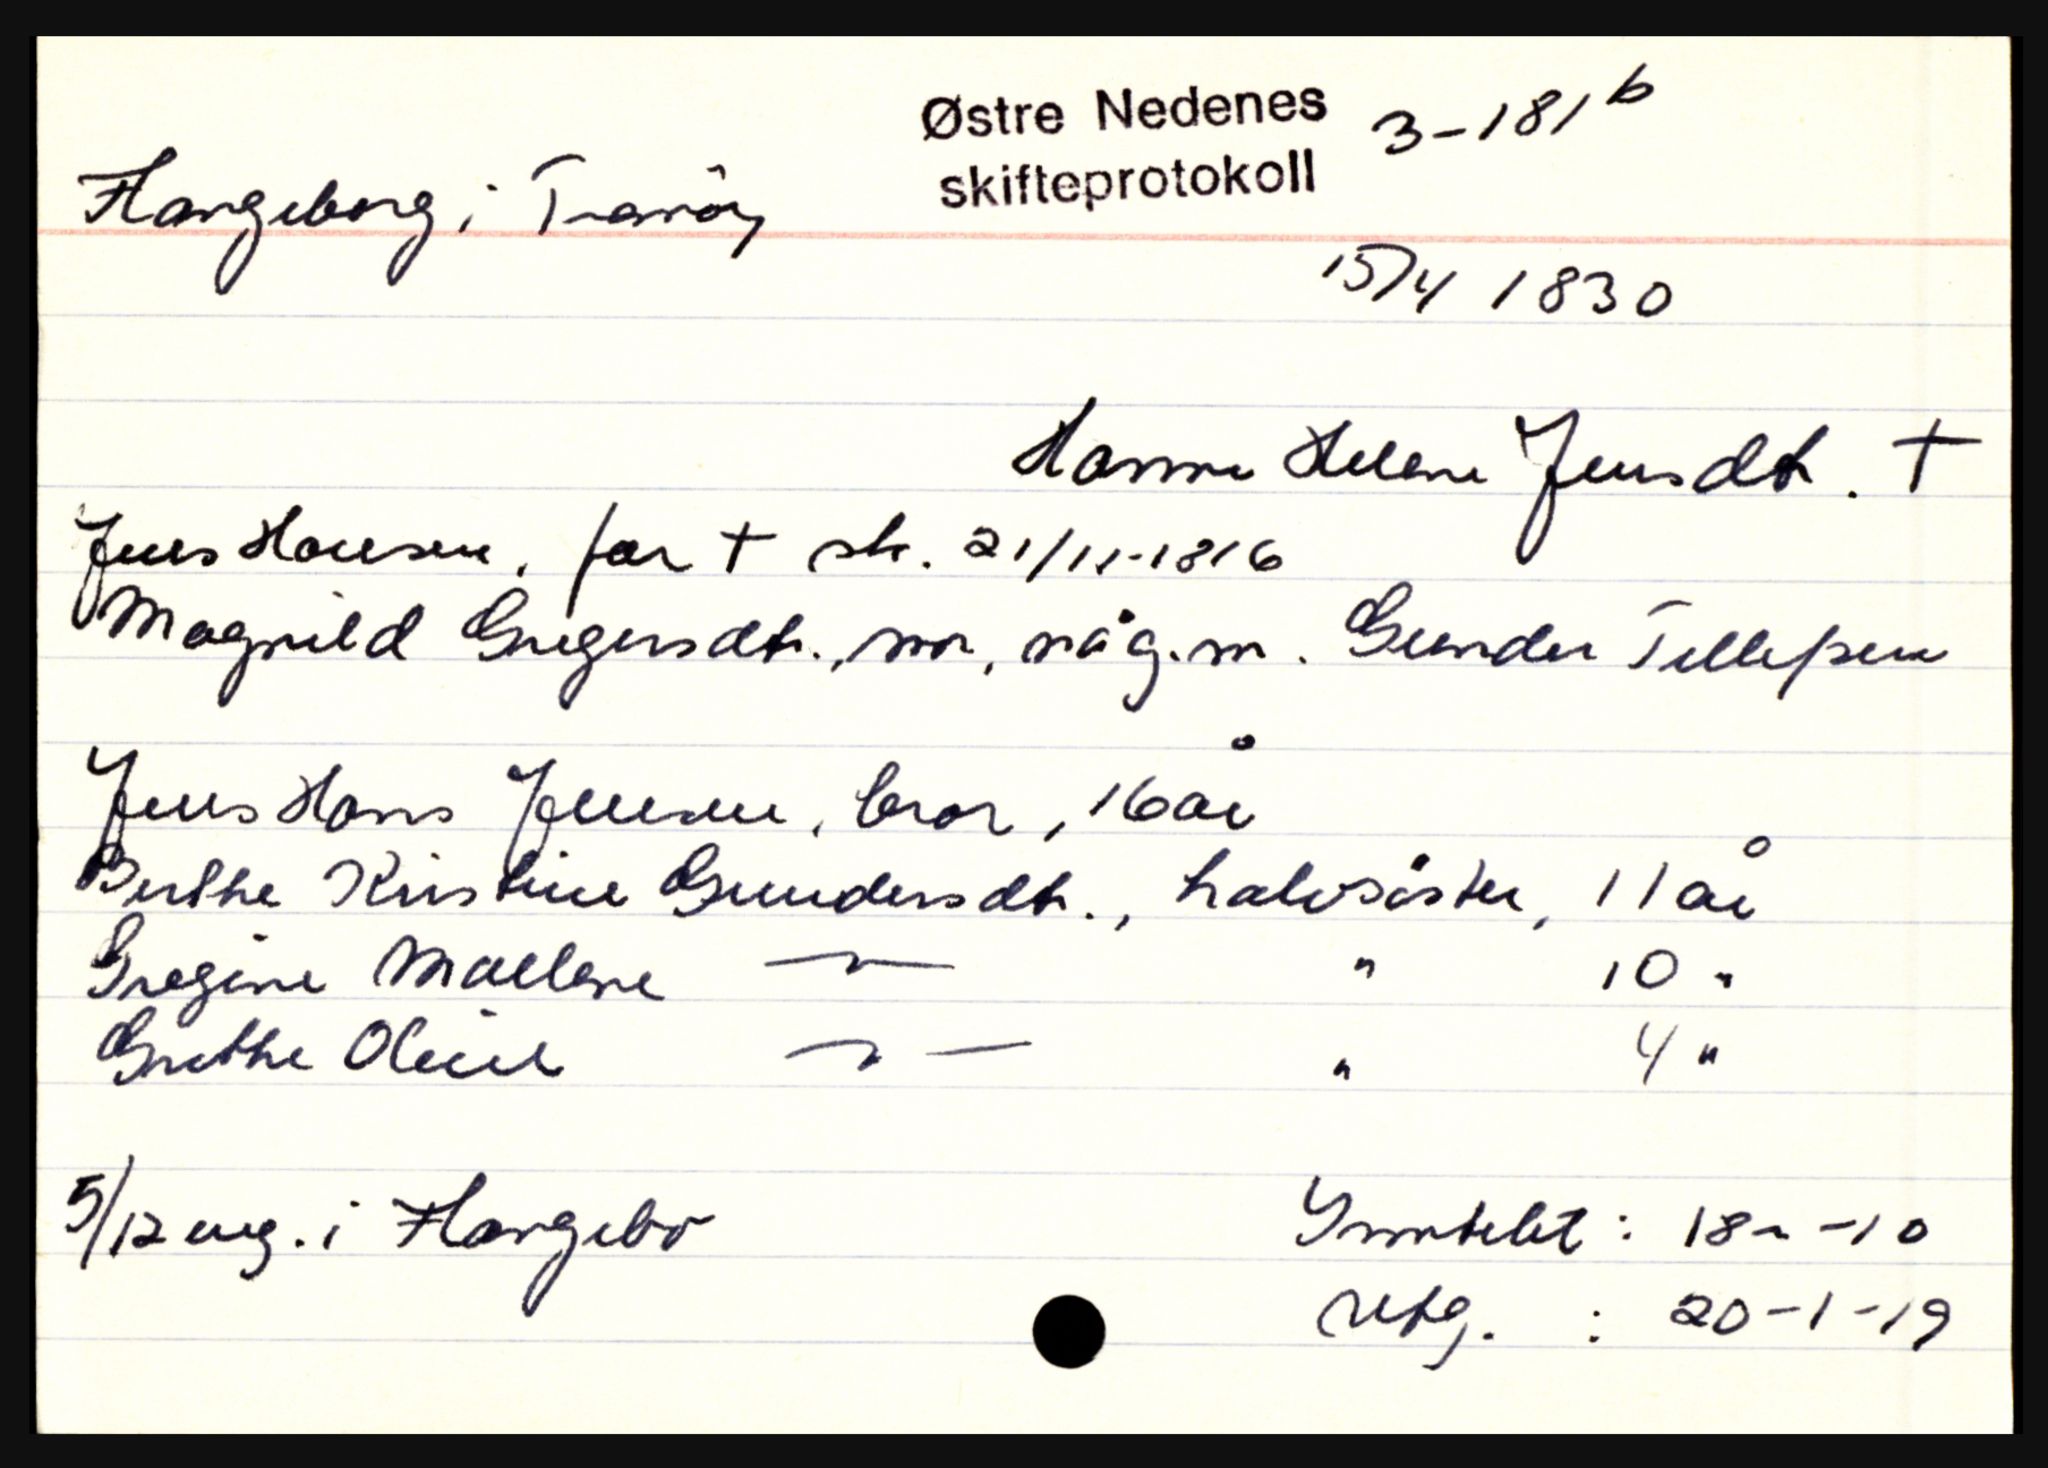 Østre Nedenes 3-181 b
skifteprotokoll
Flangeborg i Tromöy
15/4 1830
Hanne Helene Jensdtr. †
Jens Hansen, far † sk. 21/11-1816
Magnild Gregersdtr., mor, någ. m. Gunder Tellefsen
Jens Hans Jensen, bror, 16 år
Berthe Kristine Gundersdtr., halvsöster, 11 år
Gregine Mallene —"— " 10 "
Grethe Oline —"— " 4 "
5/12 eng. i Flangebo
Inntekt : 18 - " - 10
Utg. : 20-1-19